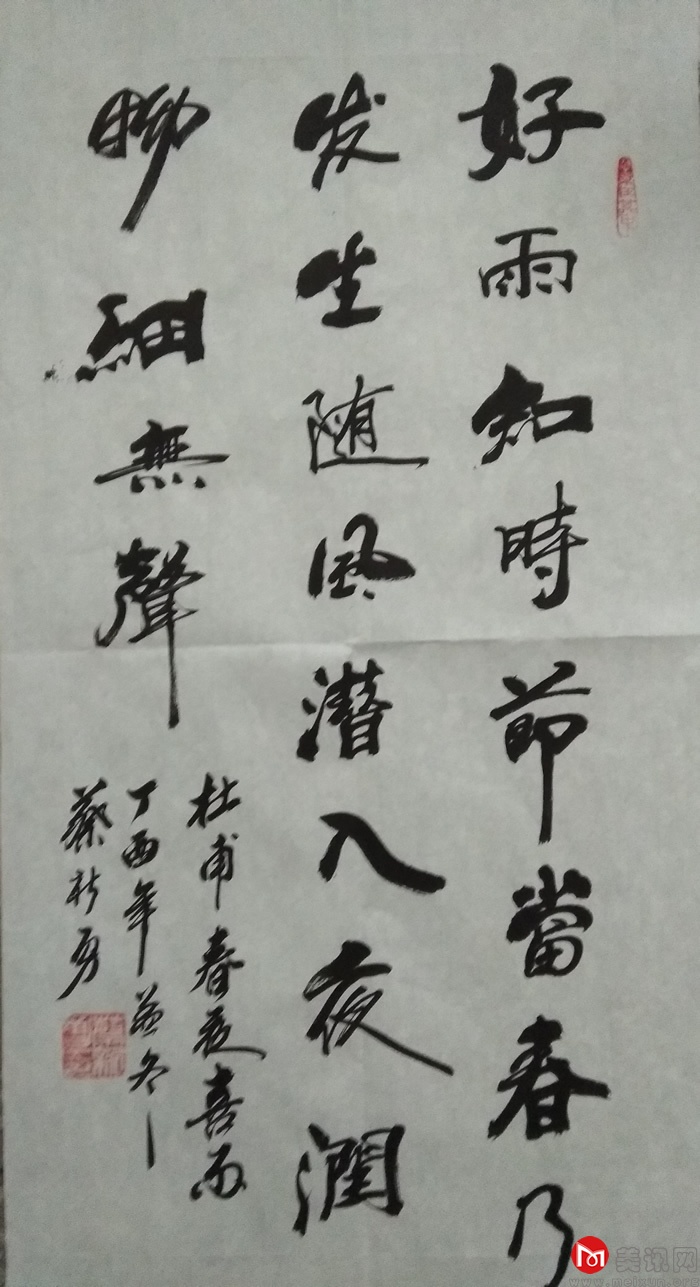 好雨知時節當春乃
发生随风潜入夜潤
物細無聲
杜甫春夜喜雨
丁酉年
蔡新勇
美讯网